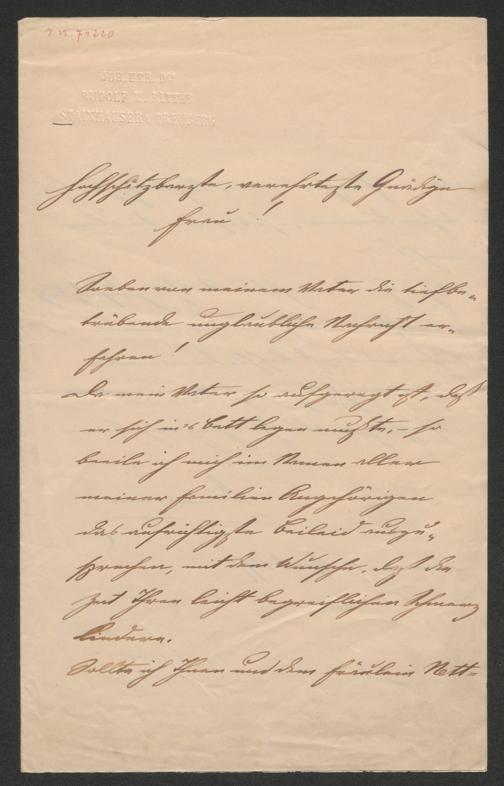 I. N. 79220
JUR. UTR. DR
RUDOLF N. RITTER
STAINHAUSER v. TREUBERG
Hochschätzbarste, verehrteste Gnädige
Frau !
Soeben von meinem Vater die tiefbe-
trübende unglaubliche Nachricht er-
fahren!
Da mein Vater so aufgeregt ist, daß
er sich in's Bett legen mußte, – so
beeile ich mich im Namen aller
meiner Familien Angehörigen
das aufrichtigste Beileid auszu-
sprechen, mit dem Wunsche, daß die
Zeit Ihren leicht begreiflichen Schmerz
lindere.
Sollte ich Ihnen und dem Fräulein Nett-